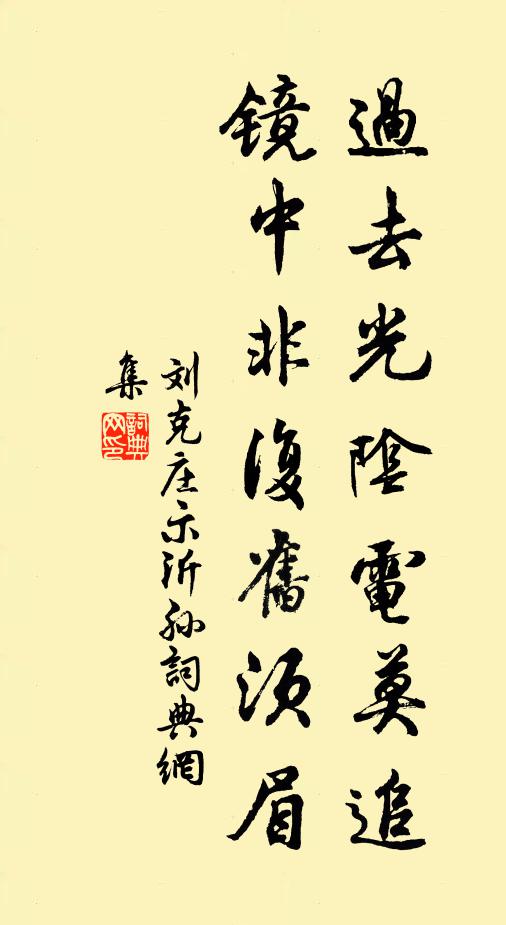 過去光陰電莫追
镜中非復舊须眉
刘克庄示沂孙詞典網
集
詞典
网印